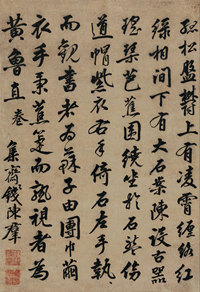 孤松盤鬱上有凌霄纏絡紅
綠相間下有大石案陳設古器
瑤琴芭蕉圍繞坐於石盤傍
道帽紫衣右手倚石左手執
而觀書者為蘇子由團巾繭
衣手秉蕉箑而熟視者為
黃魯直 卷 集齋錢陳群